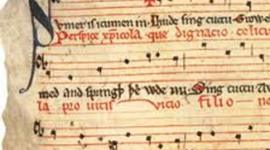 Sumer is icumen in. Lhude sing cuccu. Groweþ
Perspice xp̅icola que dignacio celicus
med and springþ þe wde nu. Sing cuccu
la pro uitis vicio filio